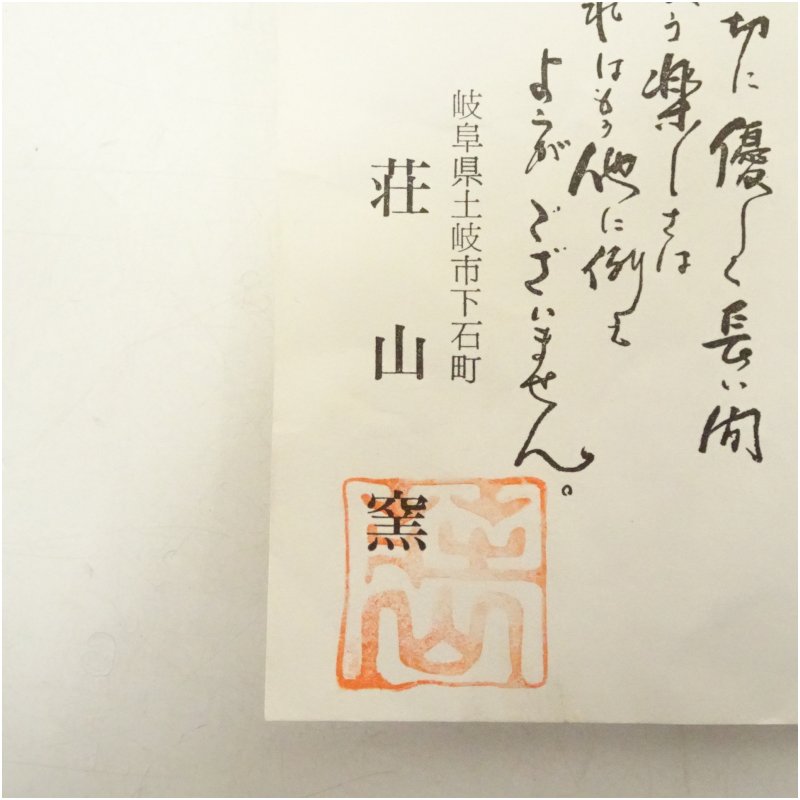 切に優しく長い間
いう楽しさは
れはもう他に例も
ようがございません。
岐阜県土岐市下石町
荘山窯